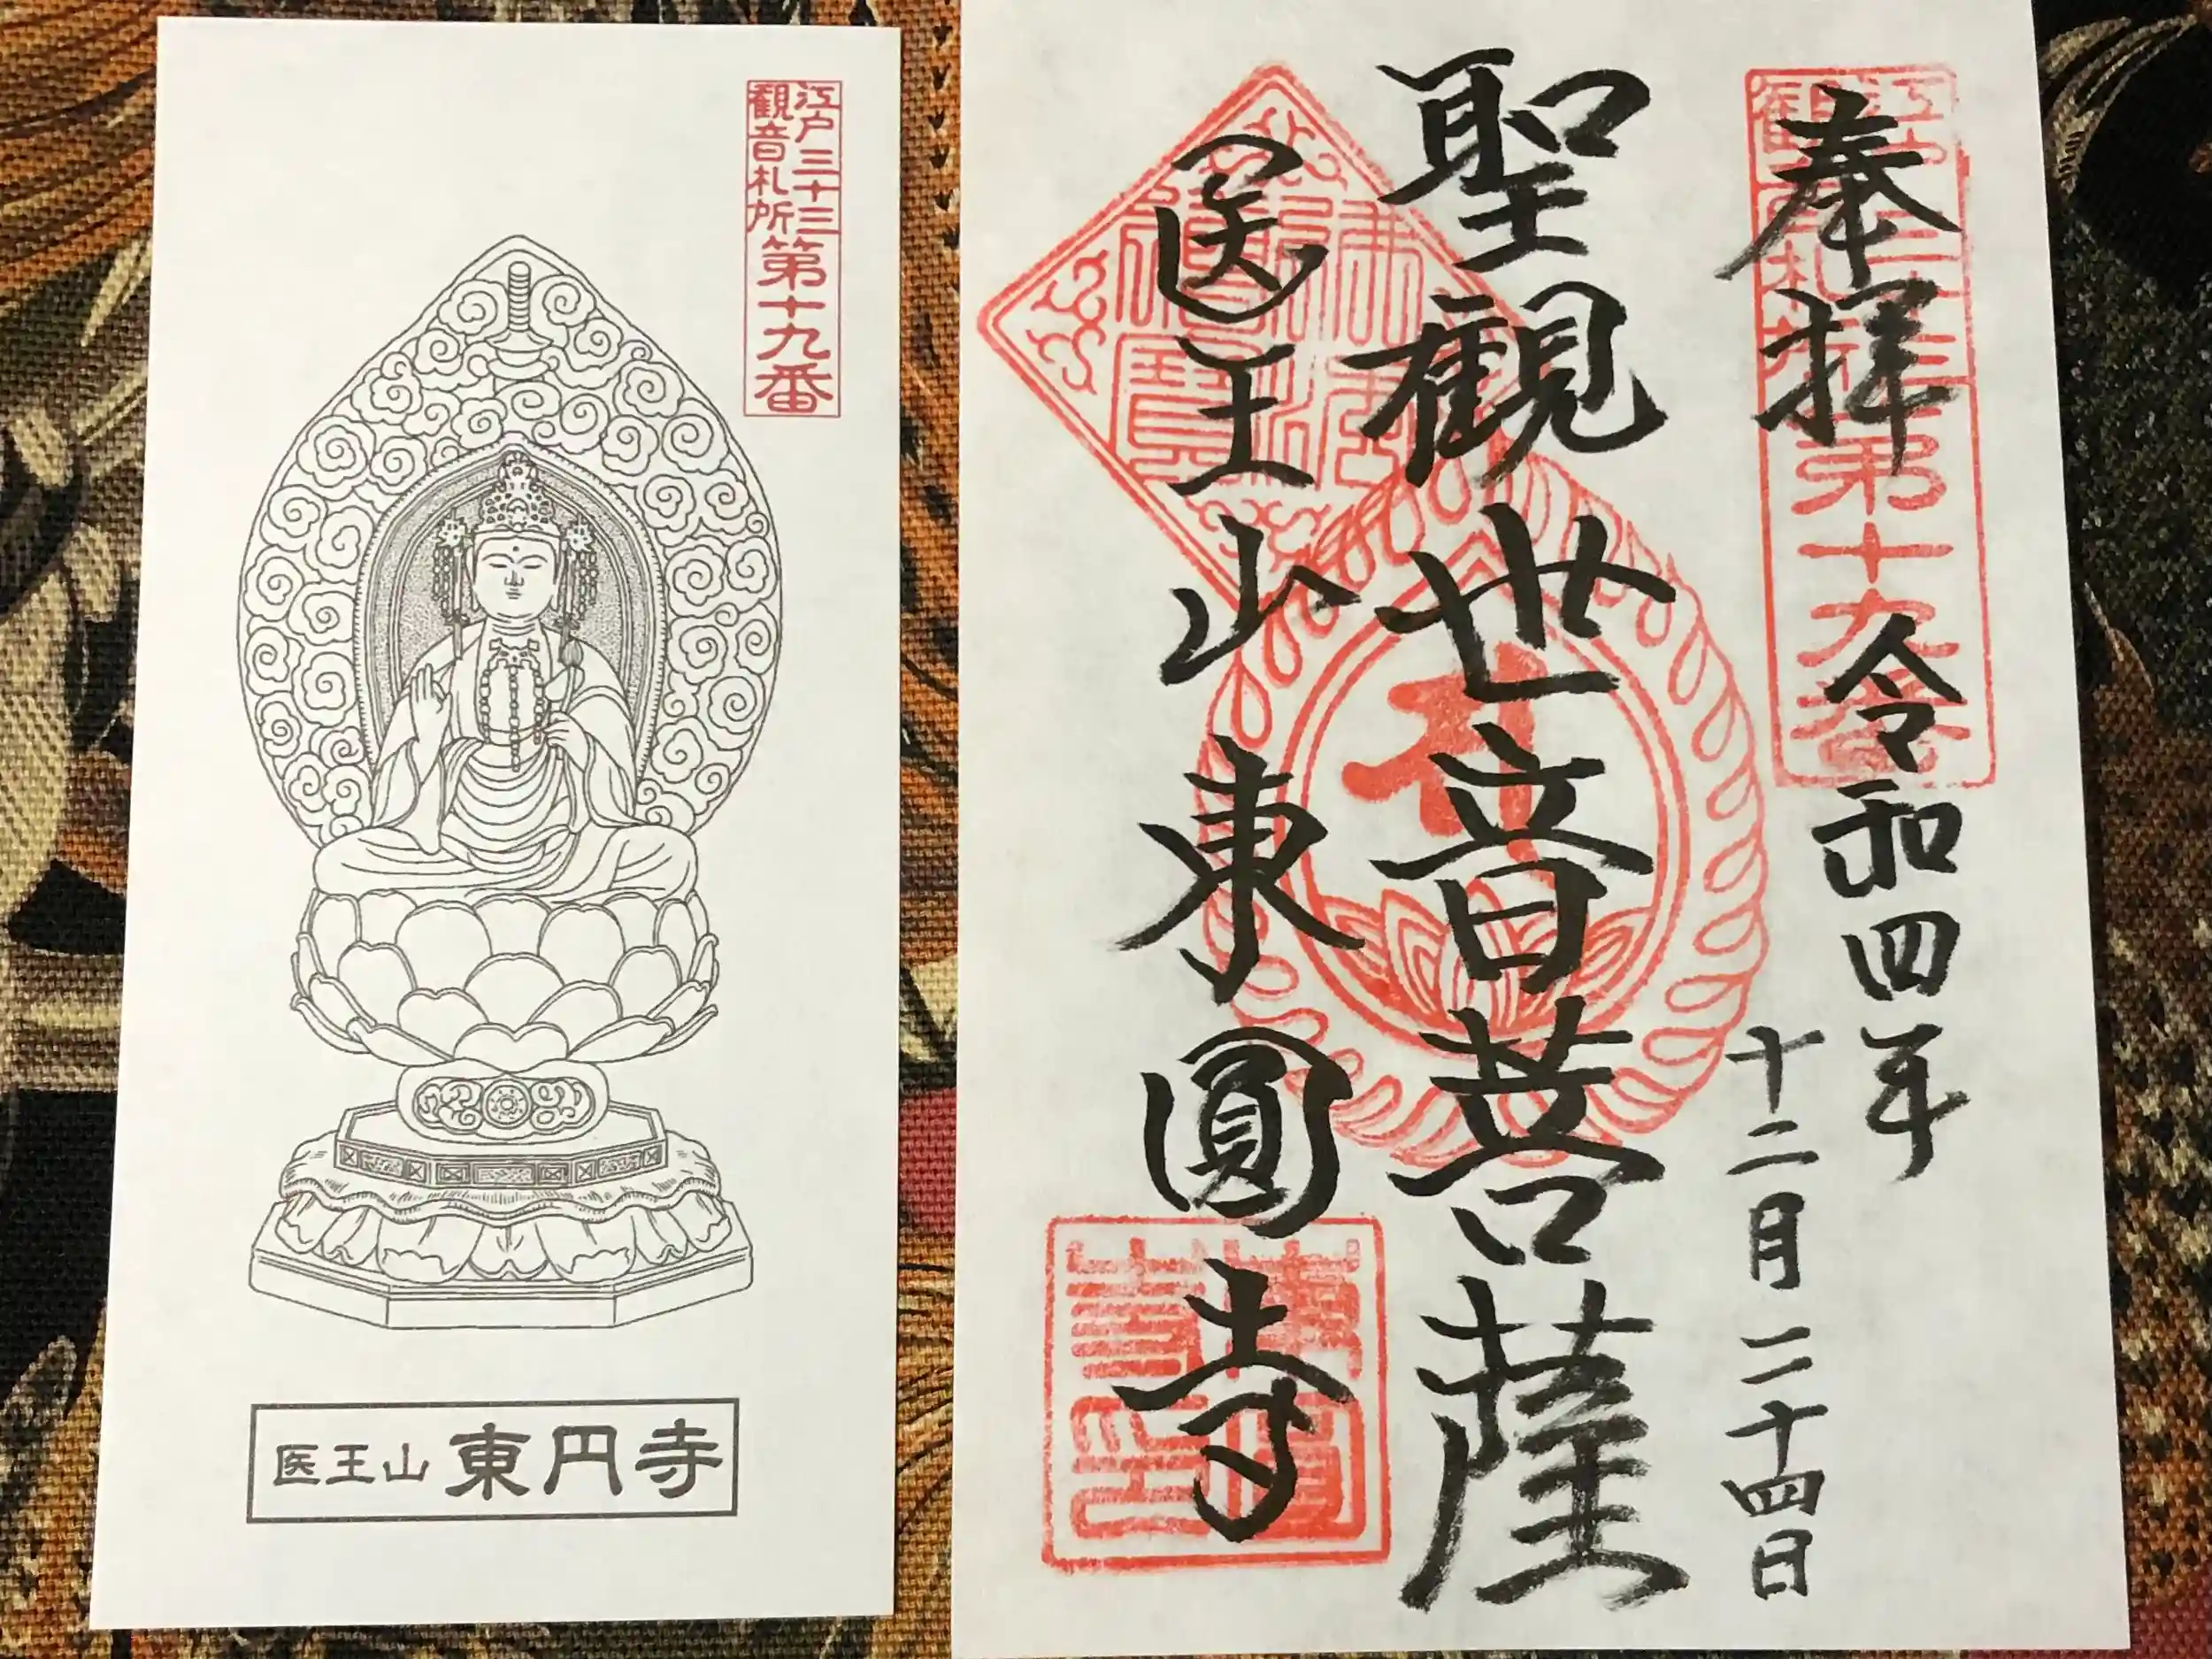 江戸三十三
観音札所
第十九番
医王山 東円寺
奉拝
令和四年
十二月二十四日
聖観世音菩薩
医王山東圓寺
江戸三十三
観音札所
第十九番